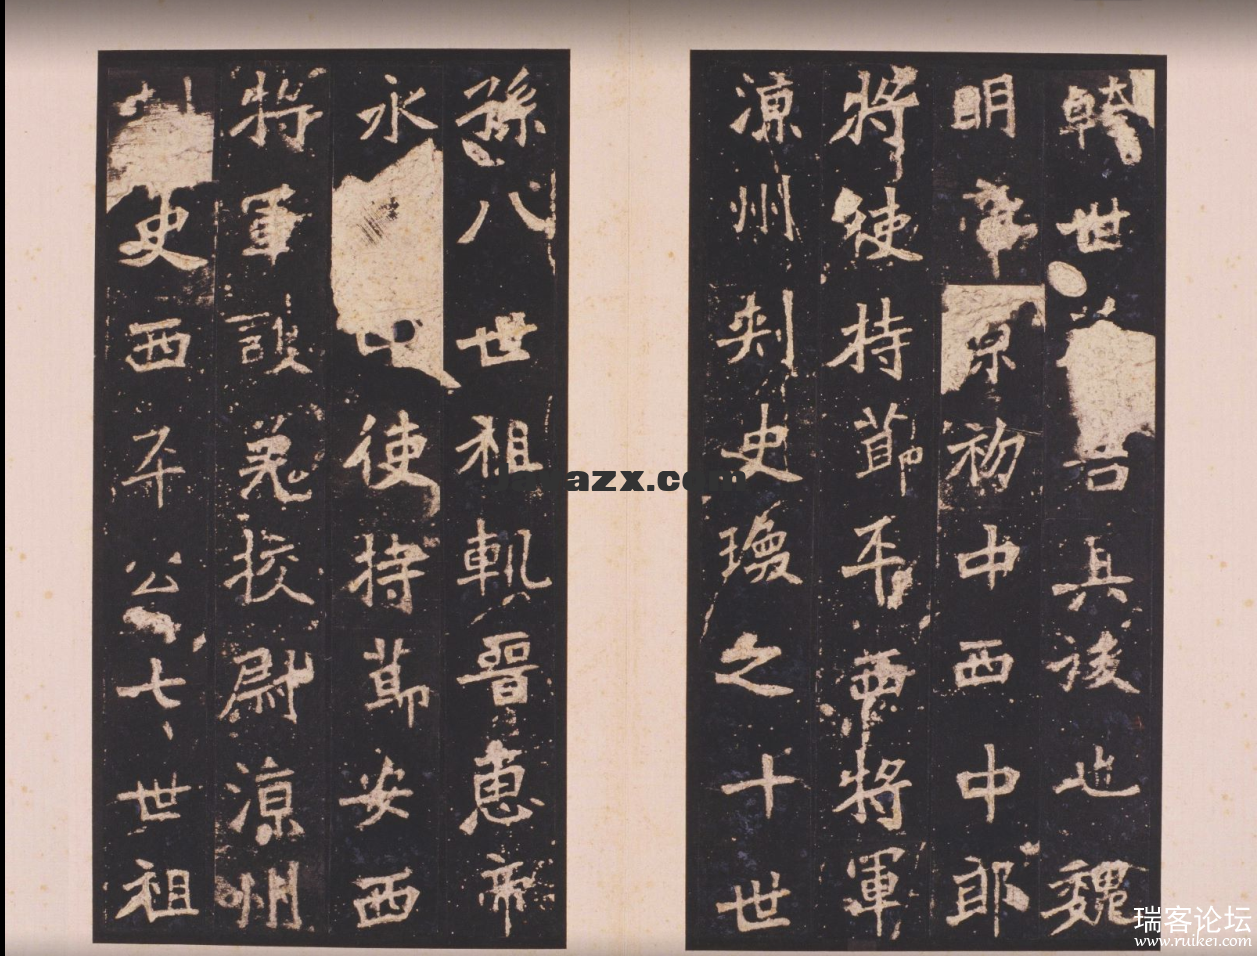 世其後也魏
明帝景初中西中郎
將使持節平西將軍
涼州刺史瑍之十世
孫八世祖軌晉惠帝
永中使持節安西
將軍護羌校尉涼州
史西平公七世祖
azx.com
瑞客论坛
www.ruike1.com